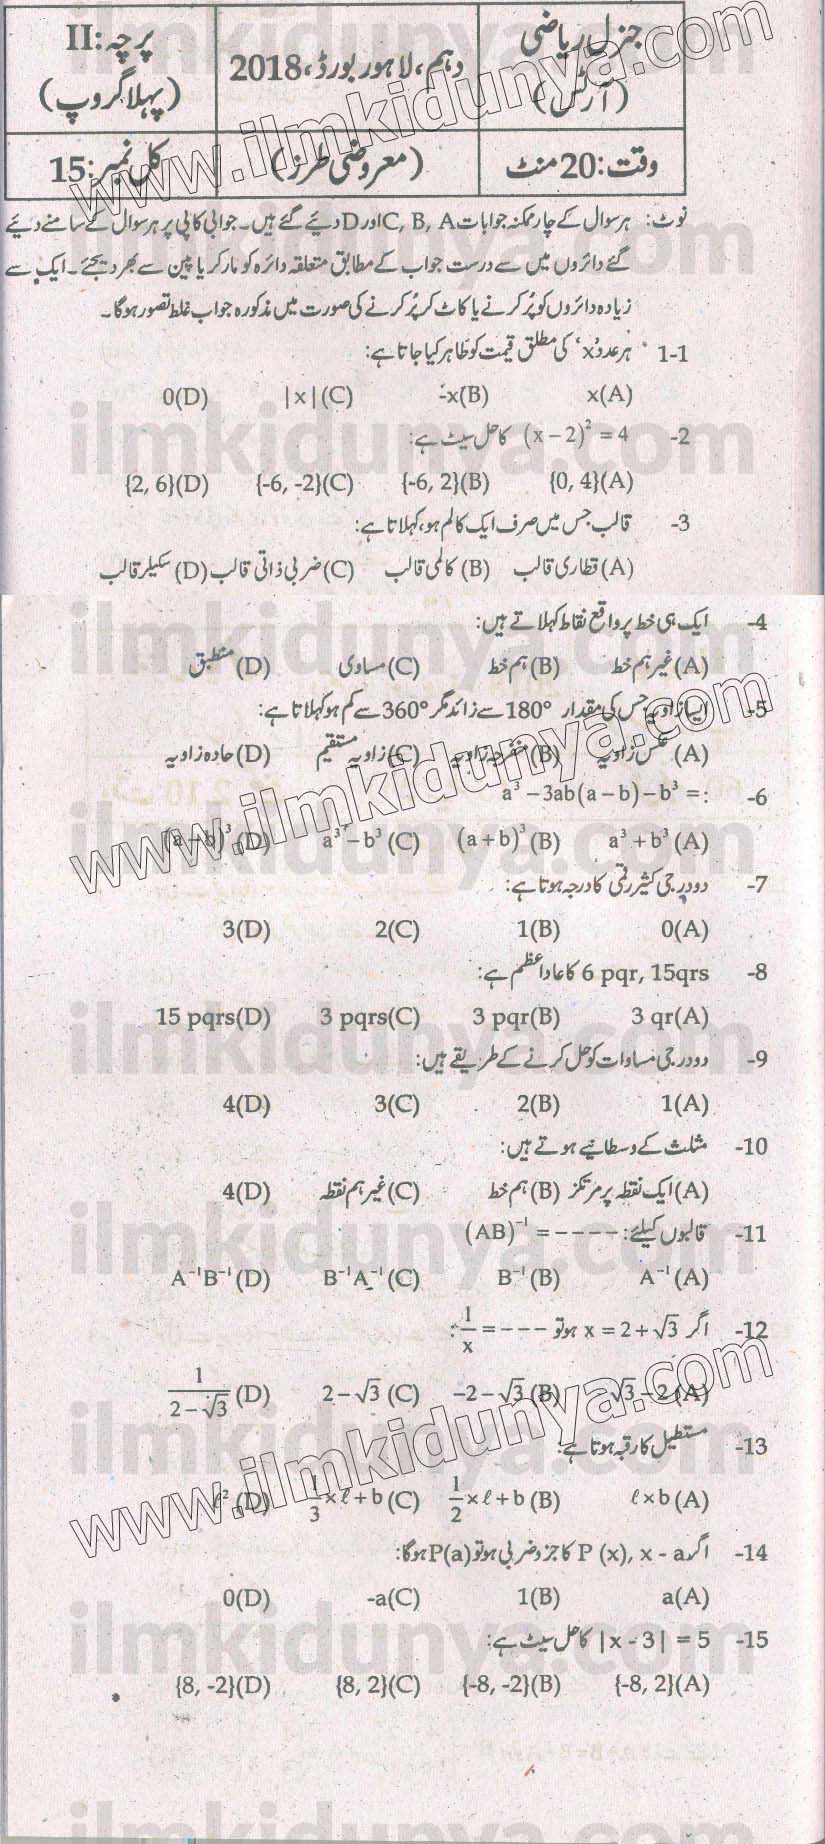 جنرل ریاضی (آرٹس)
دہم، لاہور بورڈ، 2018
پرچہ: II (پہلا گروپ)
وقت: 20 منٹ
(معروضی طرز)
کل نمبر: 15
نوٹ: ہر سوال کے چار ممکنہ جوابات C, B, A اور D دیئے گئے ہیں۔ جوابی کاپی پر ہر سوال کے سامنے دیئے
گئے دائروں میں سے درست جواب کے مطابق متعلقہ دائرہ کو مارکر یا پین سے بھر دیجئے۔ ایک سے
زیادہ دائروں کو پُر کرنے یا کاٹ کر پُر کرنے کی صورت میں مذکورہ جواب غلط تصور ہوگا۔
1-1 ہر عدد 'x' کی مطلق قیمت کو ظاہر کیا جاتا ہے:
(A) x (B) -x (C) |x| (D) 0
-2 (x – 2)² = 4 کا حل سیٹ ہے:
(A) {0, 4} (B) {-6, 2} (C) {-6, -2} (D) {2, 6}
-3 قالب جس میں صرف ایک کالم ہو، کہلاتا ہے:
(A) قطاری قالب (B) کالمی قالب (C) ضربی ذاتی قالب (D) سکیلر قالب
-4 ایک ہی خط پر واقع نقاط کہلاتے ہیں:
(A) غیر ہم خط (B) ہم خط (C) مساوی (D) منطبق
-5 ایسا زاویہ جس کی مقدار 180° سے زائد مگر 360° سے کم ہو کہلاتا ہے:
(A) عکس زاویہ (B) منفرجہ زاویہ (C) زاویہ مستقیم (D) حادہ زاویہ
-6 a³ – 3ab(a – b) – b³ = :
(A) a³ + b³ (B) (a + b)³ (C) a³ – b³ (D) (a – b)³
-7 دو درجی کثیر رقمی کا درجہ ہوتا ہے:
(A) 0 (B) 1 (C) 2 (D) 3
-8 6 pqr, 15qrs کا عاد اعظم ہے:
(A) 3 qr (B) 3 pqr (C) 3 pqrs (D) 15 pqrs
-9 دو درجی مساوات کو حل کرنے کے طریقے ہیں:
(A) 1 (B) 2 (C) 3 (D) 4
-10 مثلث کے وسطانیے ہوتے ہیں:
(A) ایک نقطہ پر مرتکز (B) ہم خط (C) غیر ہم نقطہ (D) 4
-11 قالبوں کیلئے: (AB)⁻¹ = – – – – –
(A) A⁻¹ (B) B⁻¹ (C) B⁻¹A⁻¹ (D) A⁻¹B⁻¹
-12 اگر x = 2 + √3 ہو تو 1/x = – – – :
(A) √3 – 2 (B) –2 – √3 (C) 2 – √3 (D) 1/(2 – √3)
-13 مستطیل کا رقبہ ہوتا ہے:
(A) ℓ × b (B) 1/2 × ℓ + b (C) 1/3 × ℓ + b (D) ℓ²
-14 اگر P (x), x - a کا جزو ضربی ہو تو P(a) ہوگا:
(A) a (B) 1 (C) -a (D) 0
-15 |x - 3| = 5 کا حل سیٹ ہے:
(A) {-8, 2} (B) {-8, -2} (C) {8, 2} (D) {8, -2}
www.ilmkidunya.com
www.ilmkidunya.com
www.ilmkidunya.com
ilmkidunya.com
ilmkidunya.com
ilmkidunya.com
ilmkidunya.com
ilmkidunya.com
ilmkidunya.com
ilmkidunya.com
ilmkidunya.com
ilmkidunya.com
ilmkidunya.com